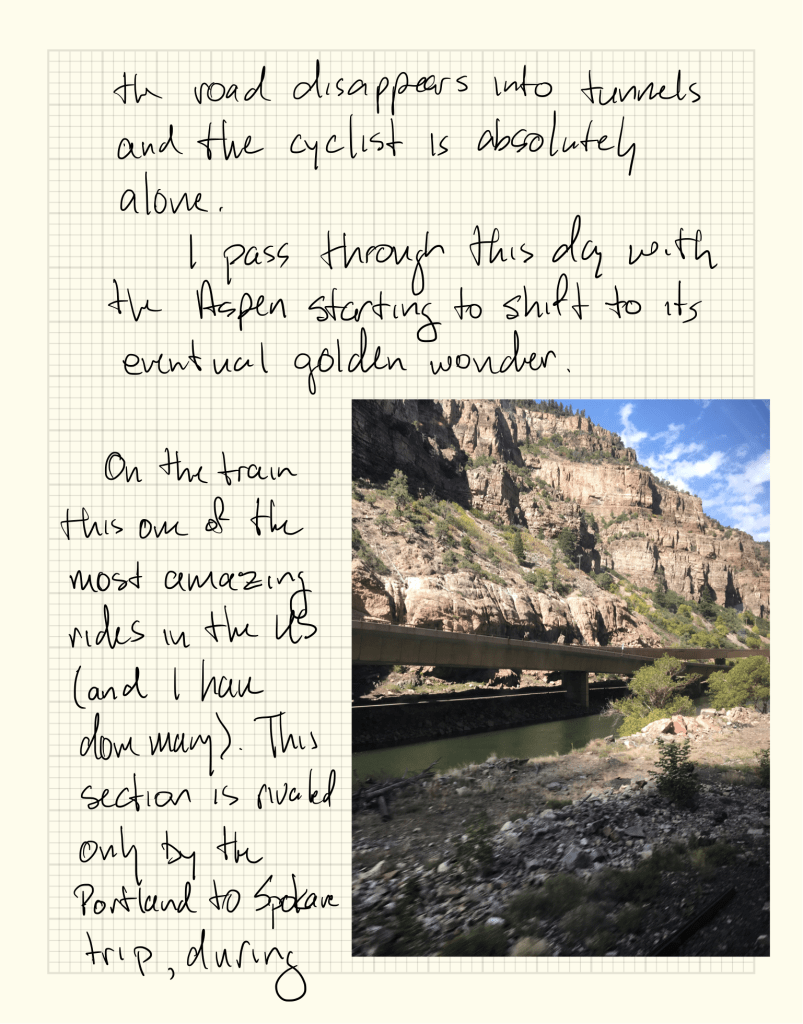 the road disappears into tunnels
and the cyclist is absolutely
alone.
I pass through this day with
the Aspen starting to shift to its
eventual golden wonder.
On the train
this one of the
most amazing
rides in the US
(and I have
done many). This
section is rivaled
only by the
Portland to Spokane
trip, during